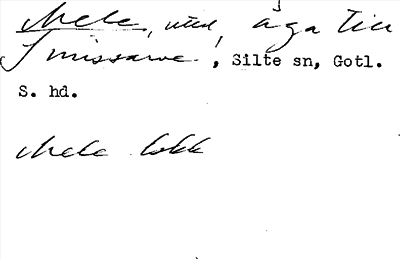 Mele, uted, äga till
Smissarve, Silte sn, Gotl.
S. hd.
Mele lokk